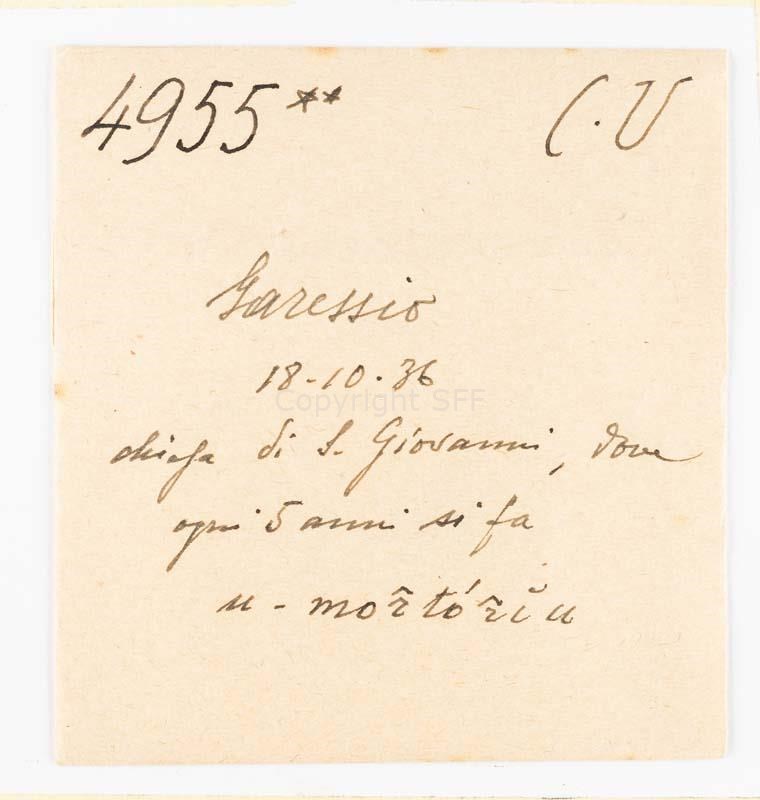 4955** C.V
Garessio
18-10.36
Copyright SFF
chiesa di S. Giovanni, dove
ogni 5 anni si fa
u - mor̃tór̃ĭu